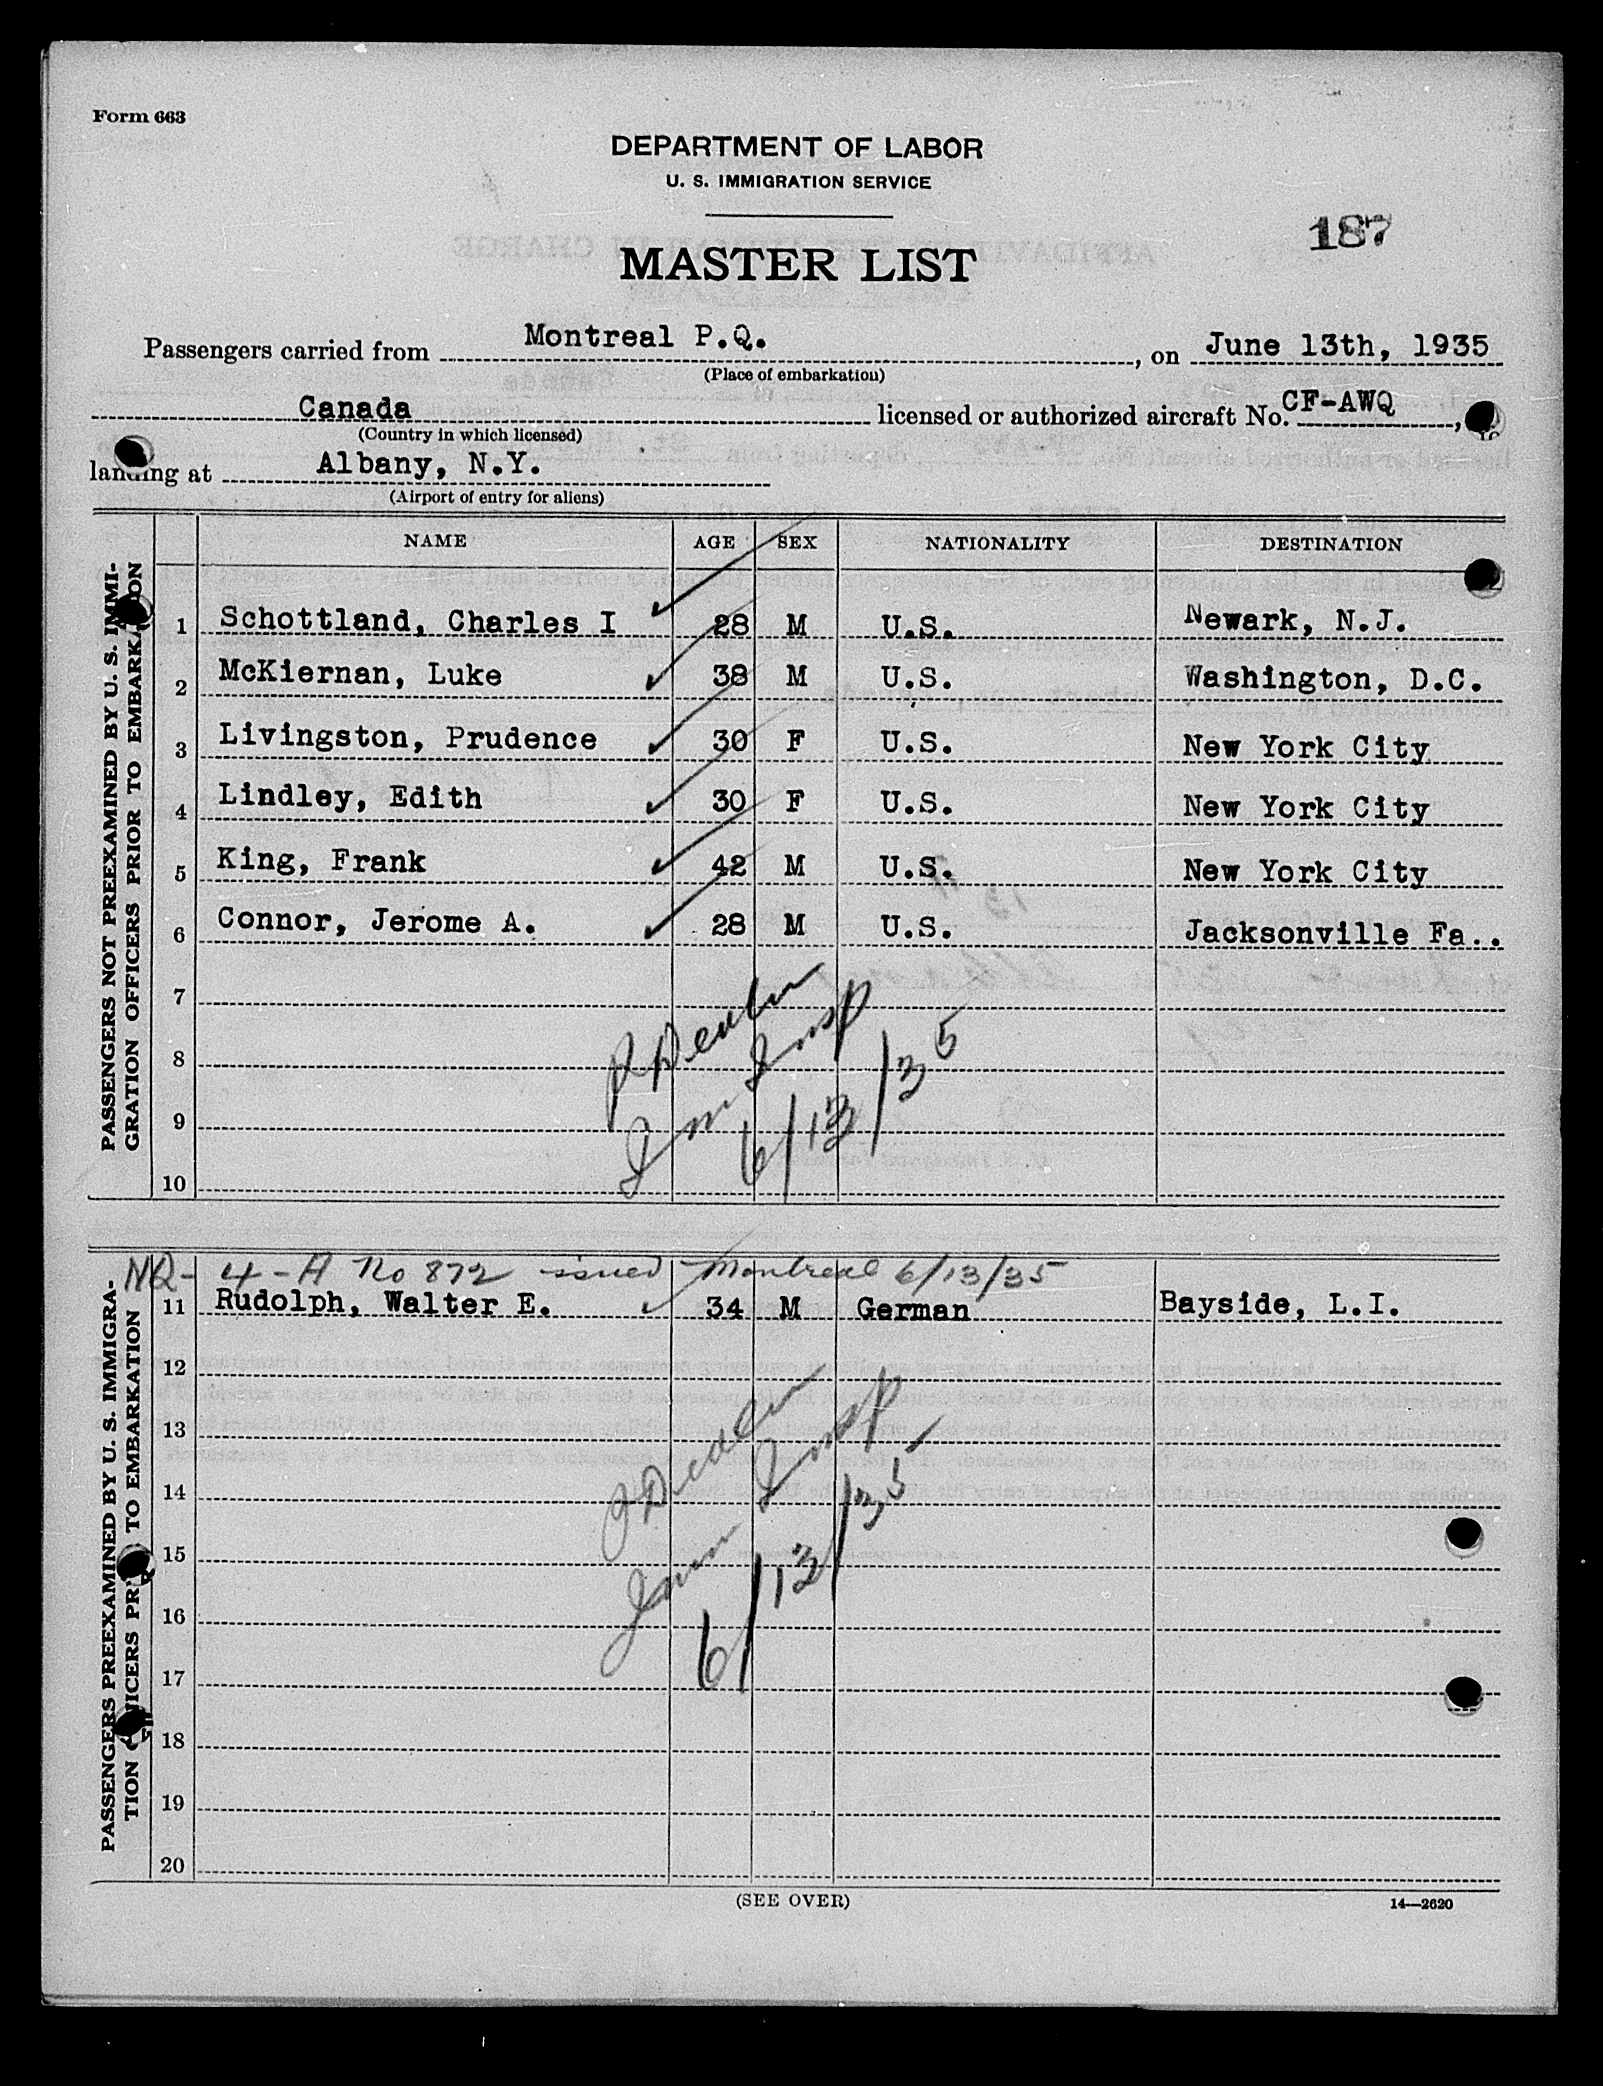 Form 663
DEPARTMENT OF LABOR
U. S. IMMIGRATION SERVICE
187
MASTER LIST
Passengers carried from Montreal P.Q., on June 13th, 1935
(Place of embarkation)
Canada licensed or authorized aircraft No. CF-AWQ,
(Country in which licensed)
landing at Albany, N.Y.
(Airport of entry for aliens)
NAME AGE SEX NATIONALITY DESTINATION
PASSENGERS NOT PREEXAMINED BY U. S. IMMI-
GRATION OFFICERS PRIOR TO EMBARKATION
1 Schottland, Charles I 28 M U.S. Newark, N.J.
2 McKiernan, Luke 38 M U.S. Washington, D.C.
3 Livingston, Prudence 30 F U.S. New York City
4 Lindley, Edith 30 F U.S. New York City
5 King, Frank 42 M U.S. New York City
6 Connor, Jerome A. 28 M U.S. Jacksonville Fa..
7
8
9
10
Imm Insp
6/13/35
PASSENGERS PREEXAMINED BY U. S. IMMIGRA-
TION OFFICERS PRIOR TO EMBARKATION
NQ- 4-A No 872 issued Montreal 6/13/35
11 Rudolph, Walter E. 34 M German Bayside, L.I.
12
13
14
15
16
17
18
19
20
Imm Insp
6/13/35
(SEE OVER)
14—2620